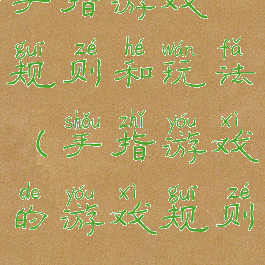 手指游戏
guī zé hé wán fǎ
规则和玩法
shǒu zhǐ yóu xì
（手指游戏
de yóu xì guī zé
的游戏规则